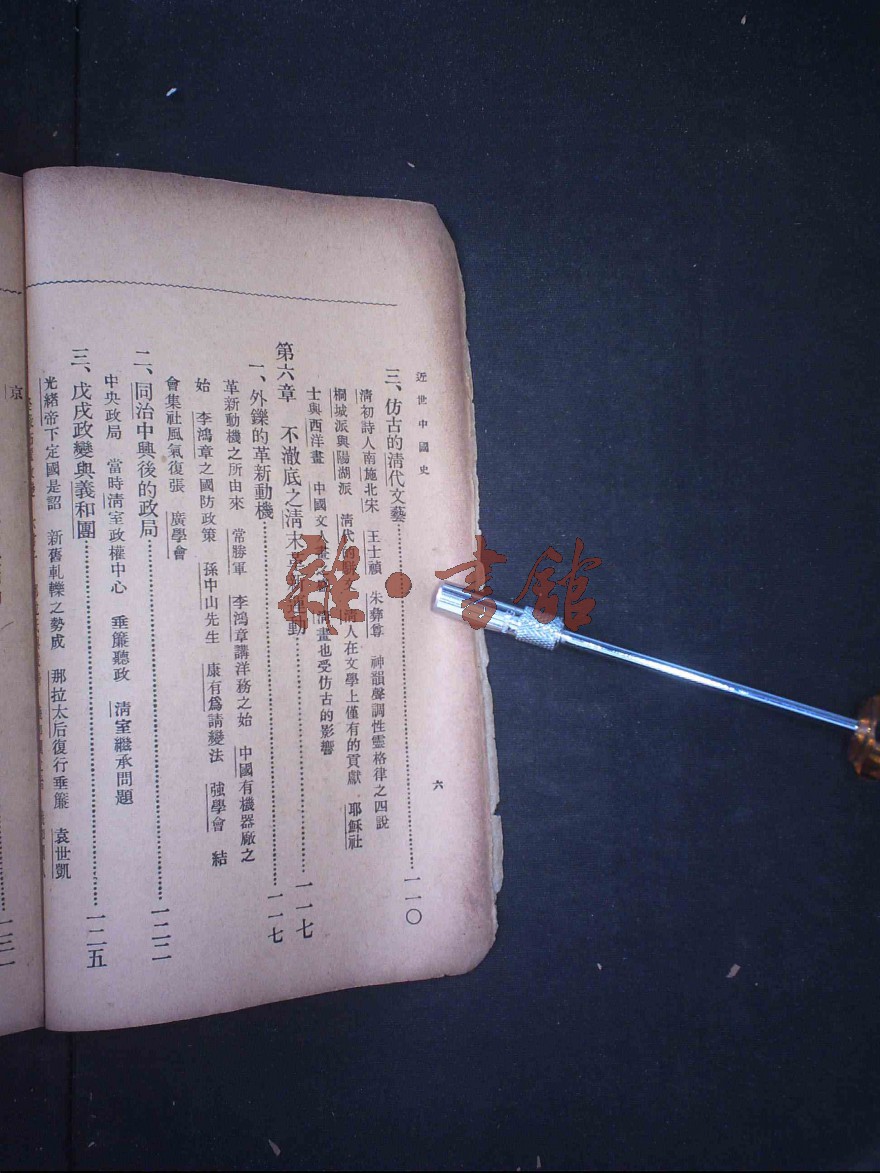 近世中國史
六
三、仿古的清代文藝……一一〇
清初詩人南施北宋 王士禎 朱彝尊 神韻聲調性靈格律之四說
桐城派與陽湖派 清代的 人在文學上僅有的貢獻 耶穌社
士與西洋畫 中國文人畫 清畫也受仿古的影響
第六章 不澈底之清末革新運動……一一七
一、外鑠的革新動機……一一七
革新動機之所由來 常勝軍 李鴻章講洋務之始 中國有機器廠之
始 李鴻章之國防政策 孫中山先生 康有爲請變法 強學會 結
會集社風氣復張 廣學會
二、同治中興後的政局……一二二
中央政局 當時清室政權中心 垂簾聽政 清室繼承問題
三、戊戌政變與義和團……一二五
光緒帝下定國是詔 新舊軋轢之勢成 那拉太后復行垂簾 袁世凱
京
一三一
雜·書館